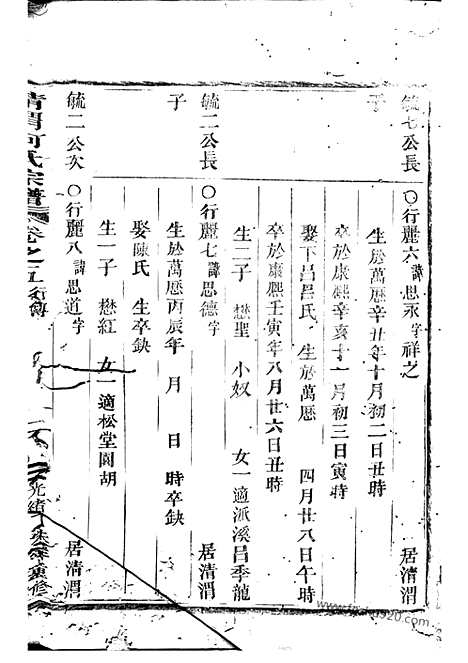 毓七公長子
○行麗六諱思永字祥之 居清渭
生於萬曆辛丑年十月初二日丑時
卒於康熙辛亥十一月初三日寅時
娶下呂呂氏 生於萬曆 四月廿八日午時
卒於康熙壬寅年八月廿六日丑時
生二子 懋聖 小奴 女一適派溪呂季龍
毓二公長子
○行麗七諱思德字 居清渭
生於萬曆丙辰年 月 日 時卒缺
娶陳氏 生卒缺
生一子 懋紅 女一適松堂園胡
毓二公次
○行麗八諱思道字 居清渭
清渭何氏宗譜 卷之五行傳
光緒 重修